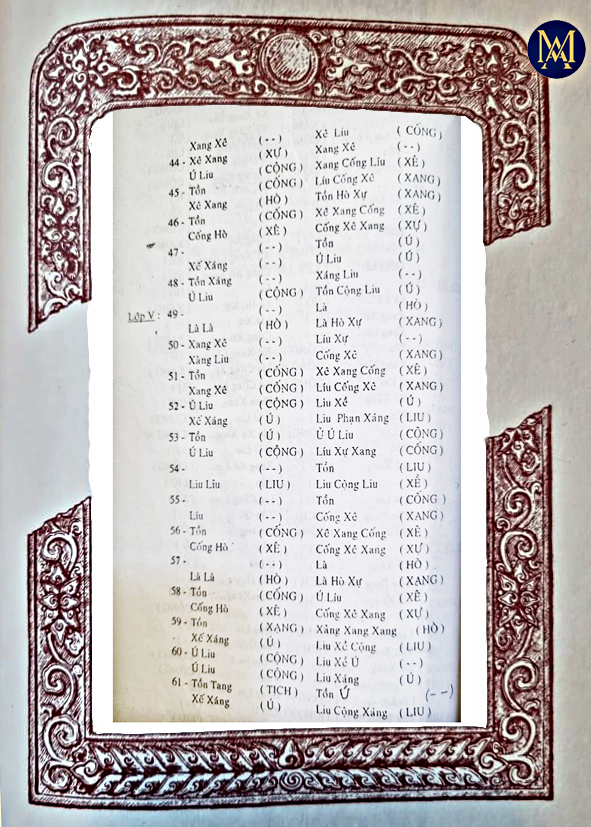 Xang Xê (--) Xê Liu (CỐNG)
44 - Xê Xang (XƯ) Xang Xê (--)
Ú Liu (CỘNG) Xang Cống Líu (XÊ)
45 - Tồn (CỐNG) Líu Cống Xê (XANG)
Xê Xang (HÒ) Tồn Hò Xự (XANG)
46 - Tồn (CỐNG) Xê Xang Cống (XÊ)
Cống Hò (XÊ) Cống Xê Xang (XỰ)
47 - (--) Tồn (Ú)
Xế Xáng (--) Ú Liu (Ú)
48 - Tồn Xáng (--) Xáng Liu (--)
Ú Liu (CỘNG) Tồn Cộng Liu (Ú)
Lớp V : 49 - (--) Là (HÒ)
Là Là (HÒ) Là Hò Xự (XANG)
50 - Xang Xê (--) Líu Xự (--)
Xàng Liu (--) Cống Xê (XANG)
51 - Tồn (CỐNG) Xê Xang Cống (XÊ)
Xang Xê (CỐNG) Líu Cống Xê (XANG)
52 - Ú Liu (CỘNG) Liu Xề (Ú)
Xế Xáng (Ú) Liu Phạn Xáng (LIU)
53 - Tồn (Ú) Ú Ú Liu (CỘNG)
Ú Liu (CỘNG) Líu Xự Xang (CỐNG)
54 - (--) Tồn (LIU)
Liu Lìu (LIU) Liu Cộng Liu (XỀ)
55 - (--) Tồn (CỐNG)
Líu (--) Cống Xê (XANG)
56 - Tồn (CỐNG) Xê Xang Cống (XÊ)
Cống Hò (XÊ) Cống Xê Xang (XƯ)
57 - (--) Là (HÒ)
Là Là (HÒ) Là Hò Xự (XANG)
58 - Tồn (CỐNG) Ú Líu (XÊ)
Cống Hò (XÊ) Cống Xê Xang (XỰ)
59 - Tồn (XANG) Xàng Xang Xang (HÒ)
Xế Xáng (Ú) Liu Xề Cộng (LIU)
60 - Ú Liu (CỘNG) Liu Xề Ú (--)
Ú Liu (CỘNG) Liu Xáng (Ú)
61 - Tồn Tang (TICH) Tồn Ú (--)
Xế Xáng (Ú) Liu Cộng Xáng (LIU)